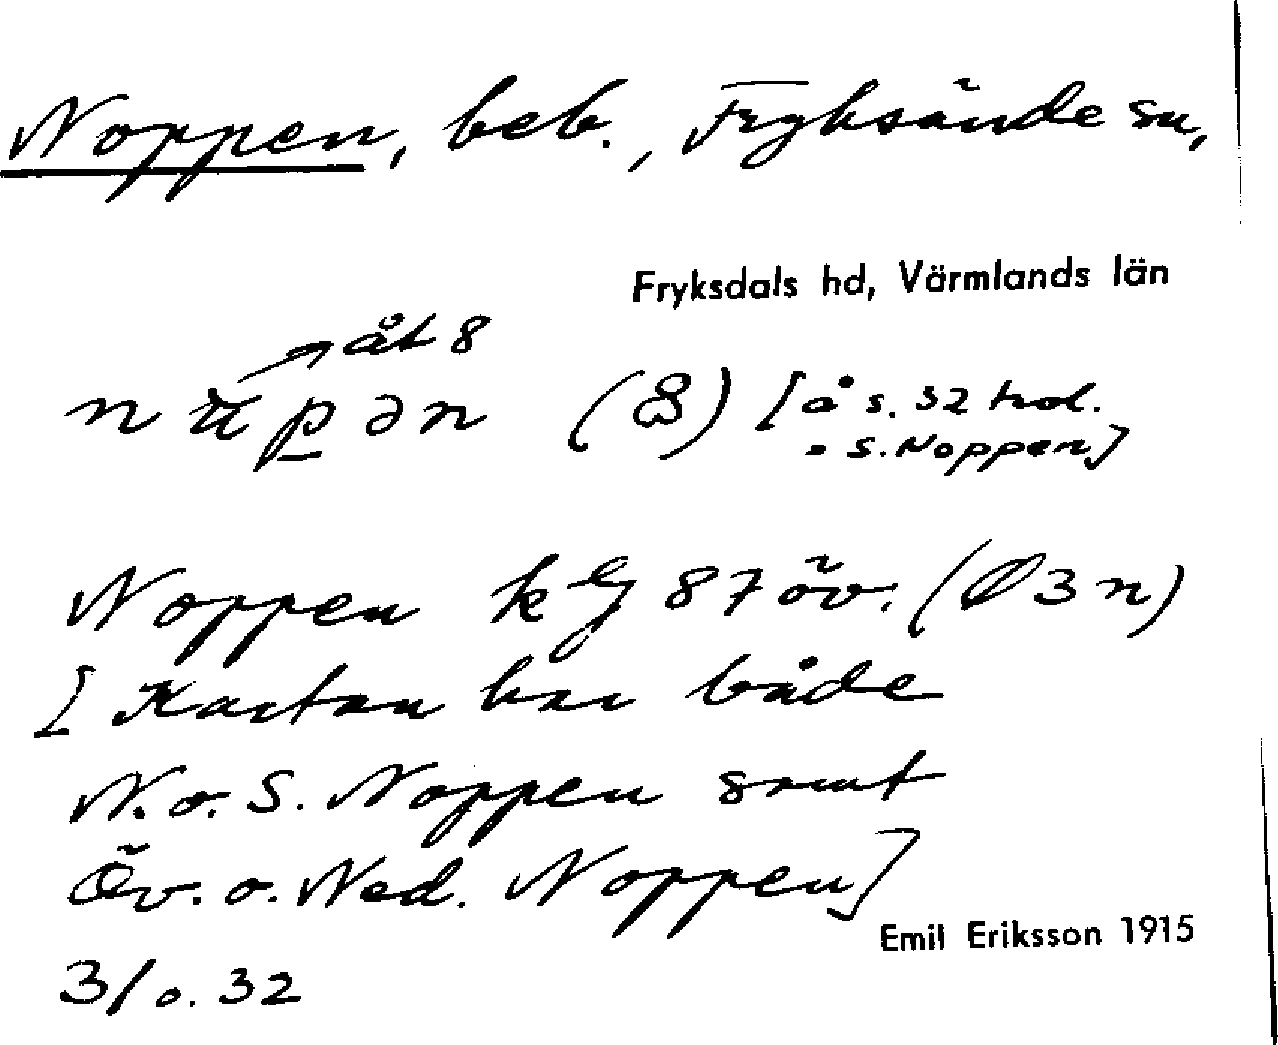 Noppen, beb., Fryksände sn,
Fryksdals hd, Värmlands län
åt 8
[å s. 32 hol.
" S. Noppen]
Noppen k 87 öv. (Ø3n)
[Kartan har både
N. o. S. Noppen samt
Öv. o. Ned. Noppen]
Emil Eriksson 1915
31 o. 32